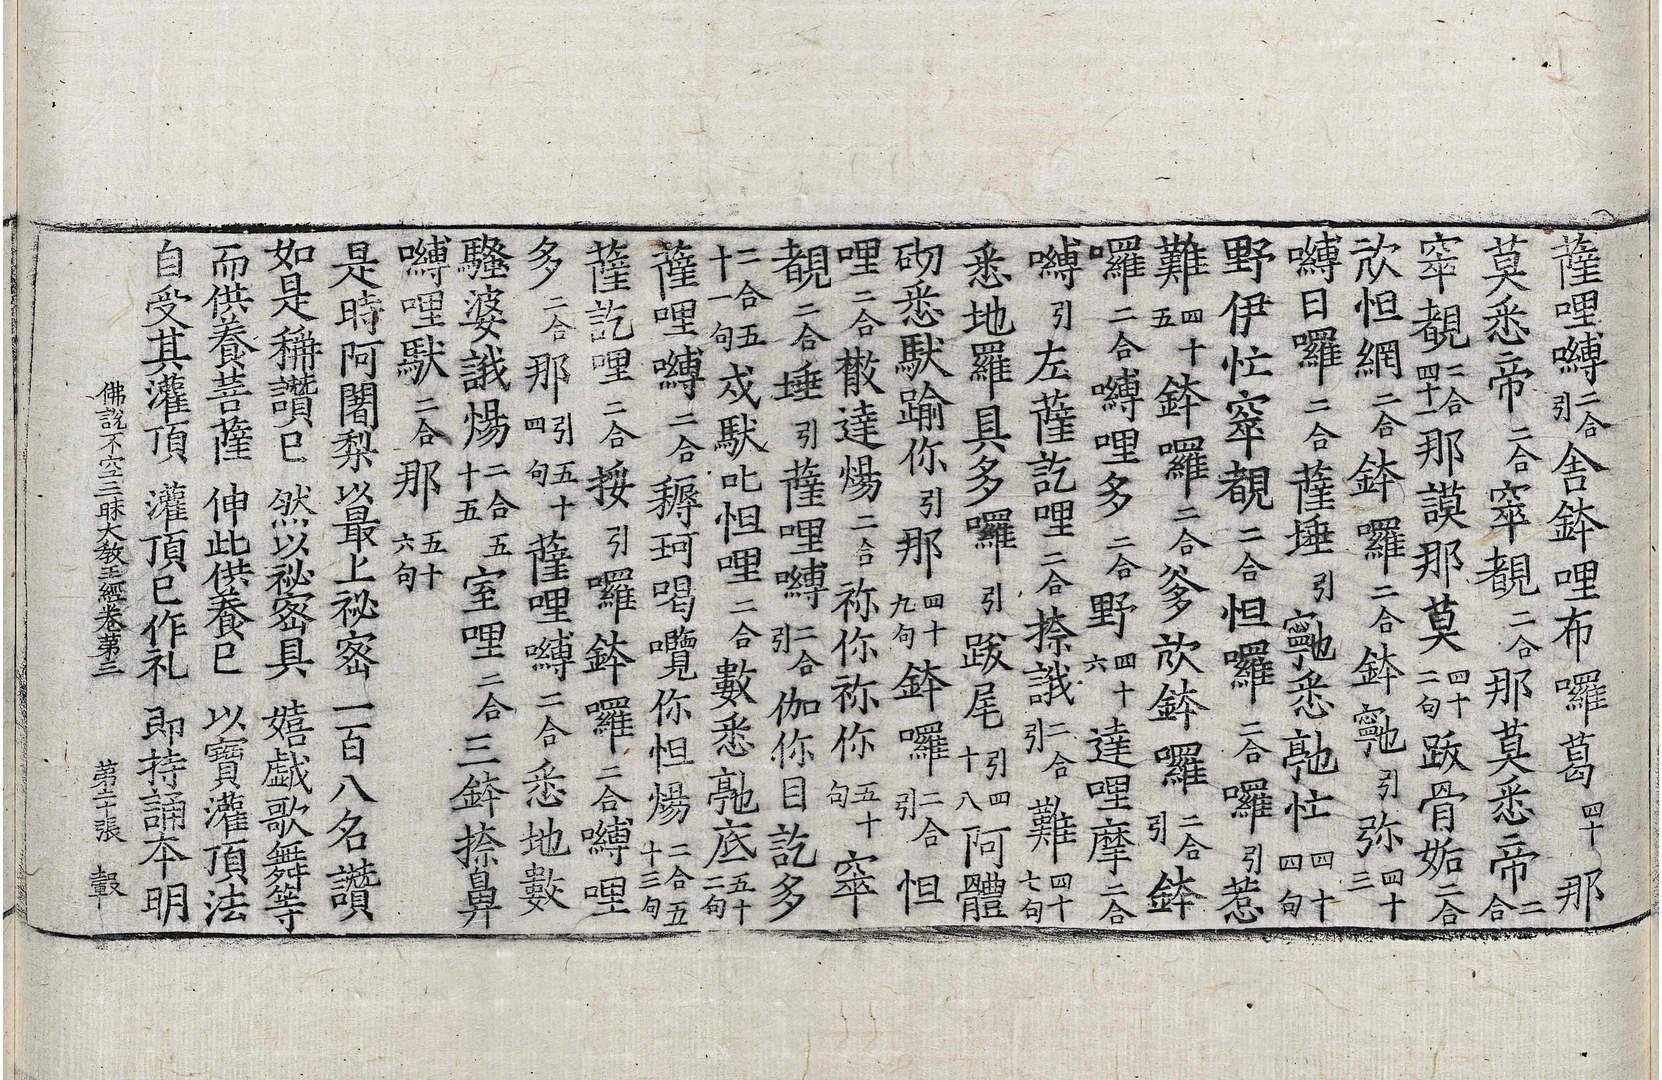 薩哩嚩二合引舍鉢哩布囉葛四十那
莫悉帝二合窣覩二合那莫悉帝二合
窣覩二合四十一那謨那莫四十二句跋骨姤二合
欤怛網二合鉢囉二合鉢䆿引弥四十三
嚩日囉二合薩埵引䆿悉亸忙四十四句
野伊忙窣覩二合怛囉二合囉引惹
難四十五鉢囉二合爹欤鉢囉二合引鉢
囉二合嚩哩多二合野四十六達哩摩二合
嚩引左薩訖哩二合捺誐二合引難四十七句
悉地羅具多囉引跋尾引四十八阿體
砌悉馱踰你引那四十九句鉢囉二合引怛
哩二合橵達煬二合祢你祢你五十句窣
覩二合埵引薩哩嚩二合引伽你目訖多
二合五十一句戍馱叱怛哩二合數悉亸底五十二句
薩哩嚩二合耨珂喝囕你怛煬二合五十三句
薩訖哩二合挼引囉鉢囉二合嚩哩
多二合那引五十四句薩哩嚩二合悉地數
騷婆誐煬二合五十五室哩二合三鉢捺鼻
嚩哩馱二合那五十六句
是時阿闍梨以最上祕密一百八名讚
如是稱讚已然以祕密具嬉戯歌舞等
而供養菩薩伸此供養已以寶灌頂法
自受其灌頂灌頂已作礼即持誦本明
佛説不空三昧大教王經卷第三 第二十張 轂